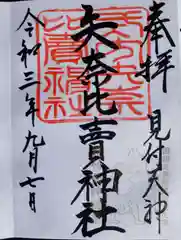 奉拝
見付天神
矢奈比賣神社
令和三年九月七日